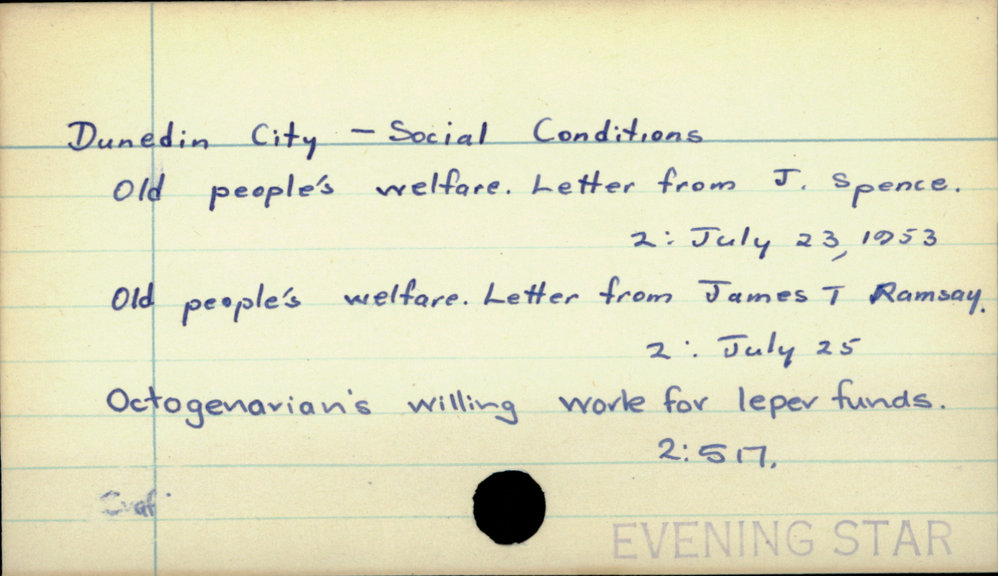 Dunedin City - Social Conditions
Old people's welfare. Letter from J. Spence.
2: July 23, 1953
Old people's welfare. Letter from James T Ramsay.
2: July 25
Octogenarian's willing work for leper funds.
2: 5 17.
EVENING STAR